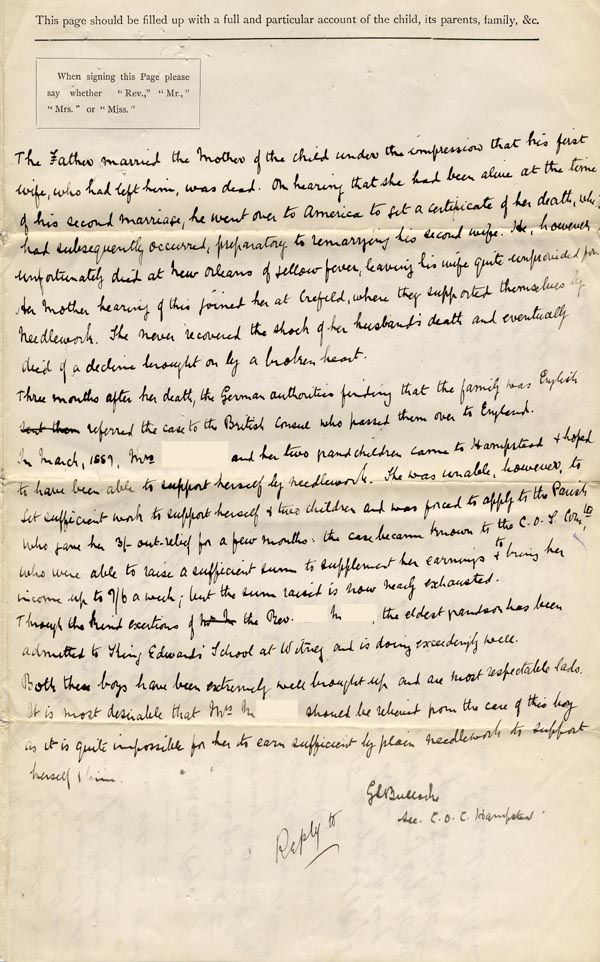 This page should be filled up with a full and particular account of the child, its parents, family, &c.
When signing this Page please
say whether "Rev.," "Mr.,"
"Mrs." or "Miss."
The Father married the Mother of the child under the impression that his first
wife, who had left him, was dead. On hearing that she had been alive at the time
of his second marriage, he went over to America to get a certificate of her death, wh
had subsequently occurred, preparatory to remarrying his second wife. He, however
unfortunately died at New Orleans of yellow fever, leaving his wife quite unprovided for
Her Mother hearing of this joined her at Crefeld, where they supported themselves by
Needlework. She never recovered the shock of her husband's death and eventually
died of a decline brought on by a broken heart.
Three months after her death, the German authorities finding that the family was English
sent them referred the case to the British Consul who passed them over to England.
In March, 1887, Mrs and her two grandchildren came to Hampstead & hoped
to have been able to support herself by needlework. She was unable, however, to
get sufficient work to support herself & two children and was forced to apply to the Parish
who gave her 3/- out-relief for a few months: the case became known to the C.O.S. Com.tee
who were able to raise a sufficient sum to supplement her earnings & to bring her
income up to 7/6 a week; but the sum raised is now nearly exhausted.
Through the kind exertions of the Rev. M , the eldest grandson has been
admitted to King Edward's School at Witney and is doing exceedingly well.
Both these boys have been extremely well brought up and are most respectable lads.
It is most desirable that Mrs M should be relieved from the care of this boy
as it is quite impossible for her to earn sufficient by plain needlework to support
herself & him.
Sec. C.O.C. Hampstead.
Reply to